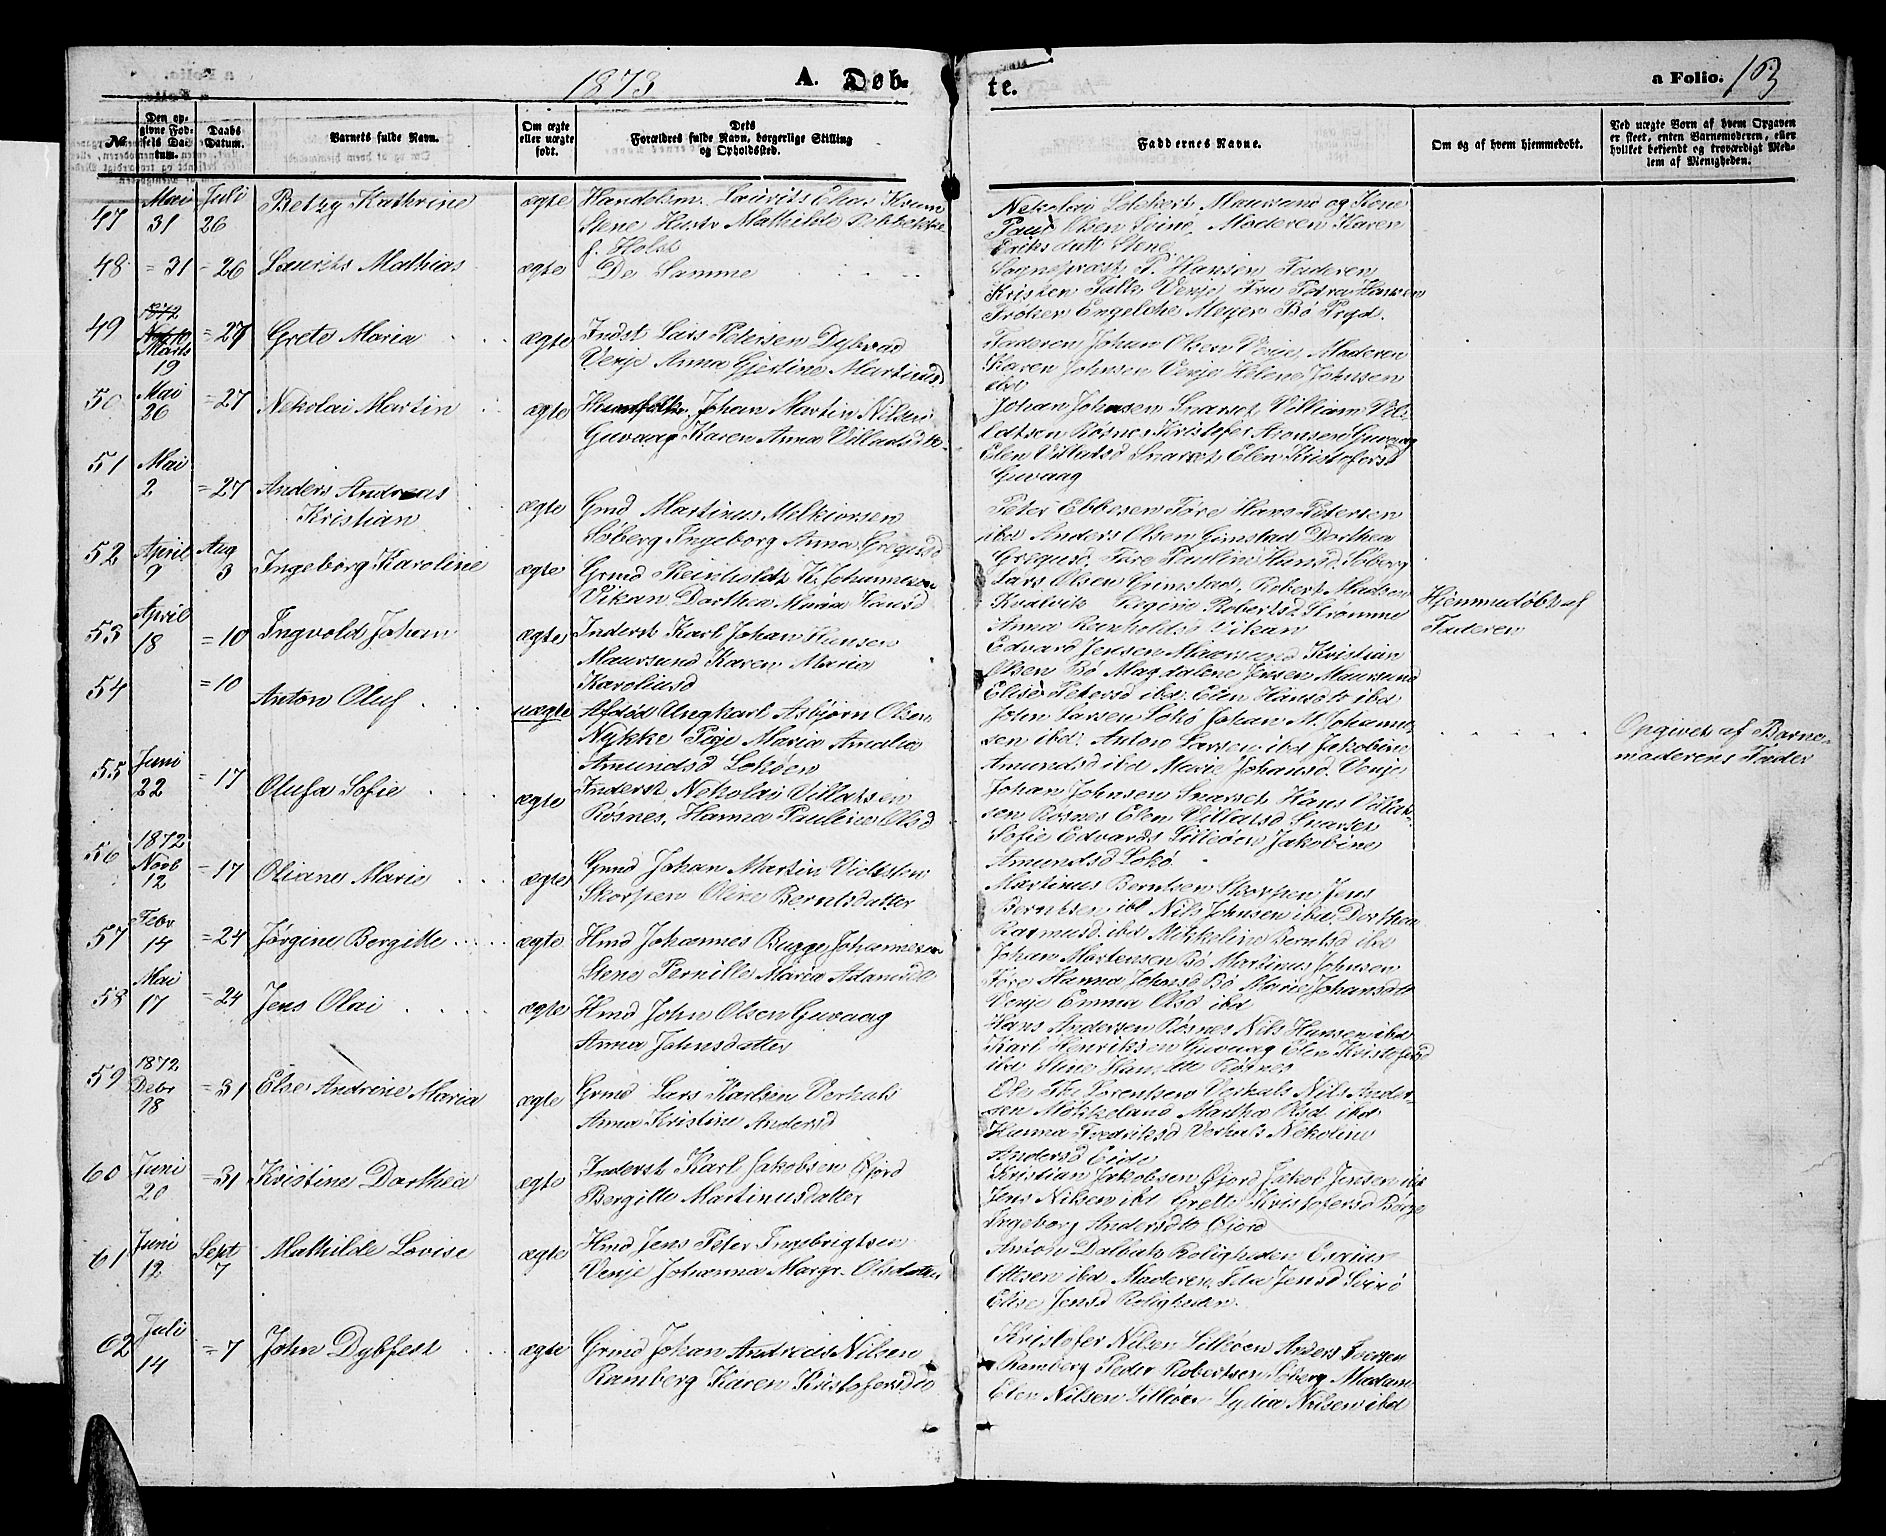 1873 A. Døbte. a Folio. 163
No. | Den opgivne Fødsels Datum. | Daabs Datum. | Barnets fulde Navn. | Om ægte eller uægte født. | Dets Forældres fulde Navn, borgerlige Stilling og Opholdssted. | Faddernes Navne. | Om og af hvem hjemmedøbt. | Ved uægte Børn af hvem Opgaven er skeet, enten Barnemoderen, eller hvilket bekjendt og troværdigt Medlem af Menigheden.
47 Mai 31 Juli 26 Betzy Kathrine ægte Handelsm. Laurits
Stene Hustr Mathilde
f. Holst
Nekolai Maursund og Kone
Paul Olsen Svinø, Moderen Karen
Eriksdatt Stene
48 = 31 = 26 Laurits Mathias ægte De Samme
Sognepræst P. Hansen Faderen
Kristen Falk Venje Fru Petra Hansen
Frøken Engelche Meyer Bø Prgd.
49 Marts 19 = 27 Grete Maria ægte Indst Lars Petersen Dybvad
Venje Anna Gjertine Martinusd
Faderen Johan Olsen Venje, Moderen
Karen Johnsen Venje Helene Johnsen
ibd
50 Mai 26 = 27 Nekolai Martin ægte Johan Martin Nilsen
Guvaag Karen Anna Villadsdtr.
Johan Johnsen Snarset Villiam
Røsnes Kristofer Aronsen Guvaag
Elen Villadsd Snarset Elen Kristofersd
Guvaag
51 Mai 2 = 27 Anders Andreas
Kristian ægte Gmd Martinus Melkiorsen
Søberg Ingeborg Anna Gregusd
Peter Ebbesen Føre Hans Petersen
ibd Anders Olsen Grimstad Dorthea
Gregusd Føre Pauline Hansd. Søberg
52 April 9 Aug 3 Ingeborg Karoline ægte Grmd Reinholdt K. Johannesen
Vikan Dorthea Maria Hansd
Lars Olsen Grimstad, Robert Madsen
Kvalvik Regine Robertsd. Strømme
Anna Reinholdsd Vikan
Hjemmedøbt af
Faderen
53 April 18 = 10 Ingvold Johan ægte Inderst Karl Johan Hansen
Maursund Karen Maria
Karoliusd
Edvard Jensen Maursund Kristian
Olsen Bø Magdalene Jensen Maursund
Elise Petersd ibd. Elen Hansdt ibd
54 = 10 Anton Oluf uægte Afdød Ungkarl Asbjørn Olsen
Nykke Pige Maria Amalia
Amundsd Lokøen
John Larsen Lokø Johan M. Johannesen
ibd. Anton Larsen ibd Jakobine
Amundsd ibd Marie Johansd. Venje
Opgivet af Barnemoderens Fader
55 Juni 22 = 17 Olufa Sofie ægte Inderst Nekolai Villatsen
Røsnes, Hanna Pauline Olsd
Johan Johnsen Snarset Hans
Røsnes Elen Villatsd Snarset
Sofie Edvards Lilleøen Jakobine
Amundsd Lokø.
56 1872 Novb 12 = 17 Oliane Marie ægte Gmd Johan Martin
Skorpen Olive Berntsdatter
Martinus Berntsen Skorpen Jens
Berntsen ibd Nils Johnsen ibd, Dorthea
Rasmusd. ibd Mikkeline Berntsd ibd
57 Febr 14 = 24 Jørgine Bergitte ægte Hmd Johannes Bugge Johannesen
Stene Pernille Maria Adamsdtr
Johan Martensen Bø Martinus Johnsen
Føre Hanna Johnsd Bø Marie Johansdtr
Venje Emma Olsd ibd
58 Mai 17 = 24 Jens Olai ægte Hmd John Olsen Guvaag
Anna Johnsdatter
Hans Andersen Røsnes Nils Hansen ibd
Karl Henriksen Guvaag Elen Kristofersd
ibd Stine Røsnes
59 1872 Debr 18 = 31 Else Andrine Maria ægte Grmd Lars Karlsen Verhals
Anna Kristine Andersd
Ole Lorentsen Verhals Nils Andersen
Møkkeland Martha Olsd ibd
Hanna Fredriksd Verhals Nekoline
Andersd Eide
60 Juni 20 = 31 Kristine Dorthea ægte Inderst Karl Jakobsen Øfjord
Bergitte Martinusdatter
Kristian Jakobsen Øfjord Jakob Jensen ibd
Jens Nilsen ibd Grette Kristofersd Børge
Ingeborg Andersdtr Øfjord
61 Juni 12 Sept 7 Mathilde Lovise ægte Hmd Jens Peter Ingebrigtsen
Venje Johanna Margr. Olsdatter
Anton Dalbak Roligheden
Ottesen ibd Moderen, Jensd Svinø
Elise Jensd Roligheden.
62 Juli 14 = 7 John Dybfest ægte Grmd Johan Andreas Nilsen
Ramberg Karen Kristofersdtr
Kristofer Nilsen Lilleøen Anders Iversen
Ramberg Peder Robertsen Søberg Madam
Elen Nilsen Lilleøen Lydia Nilsen ibd